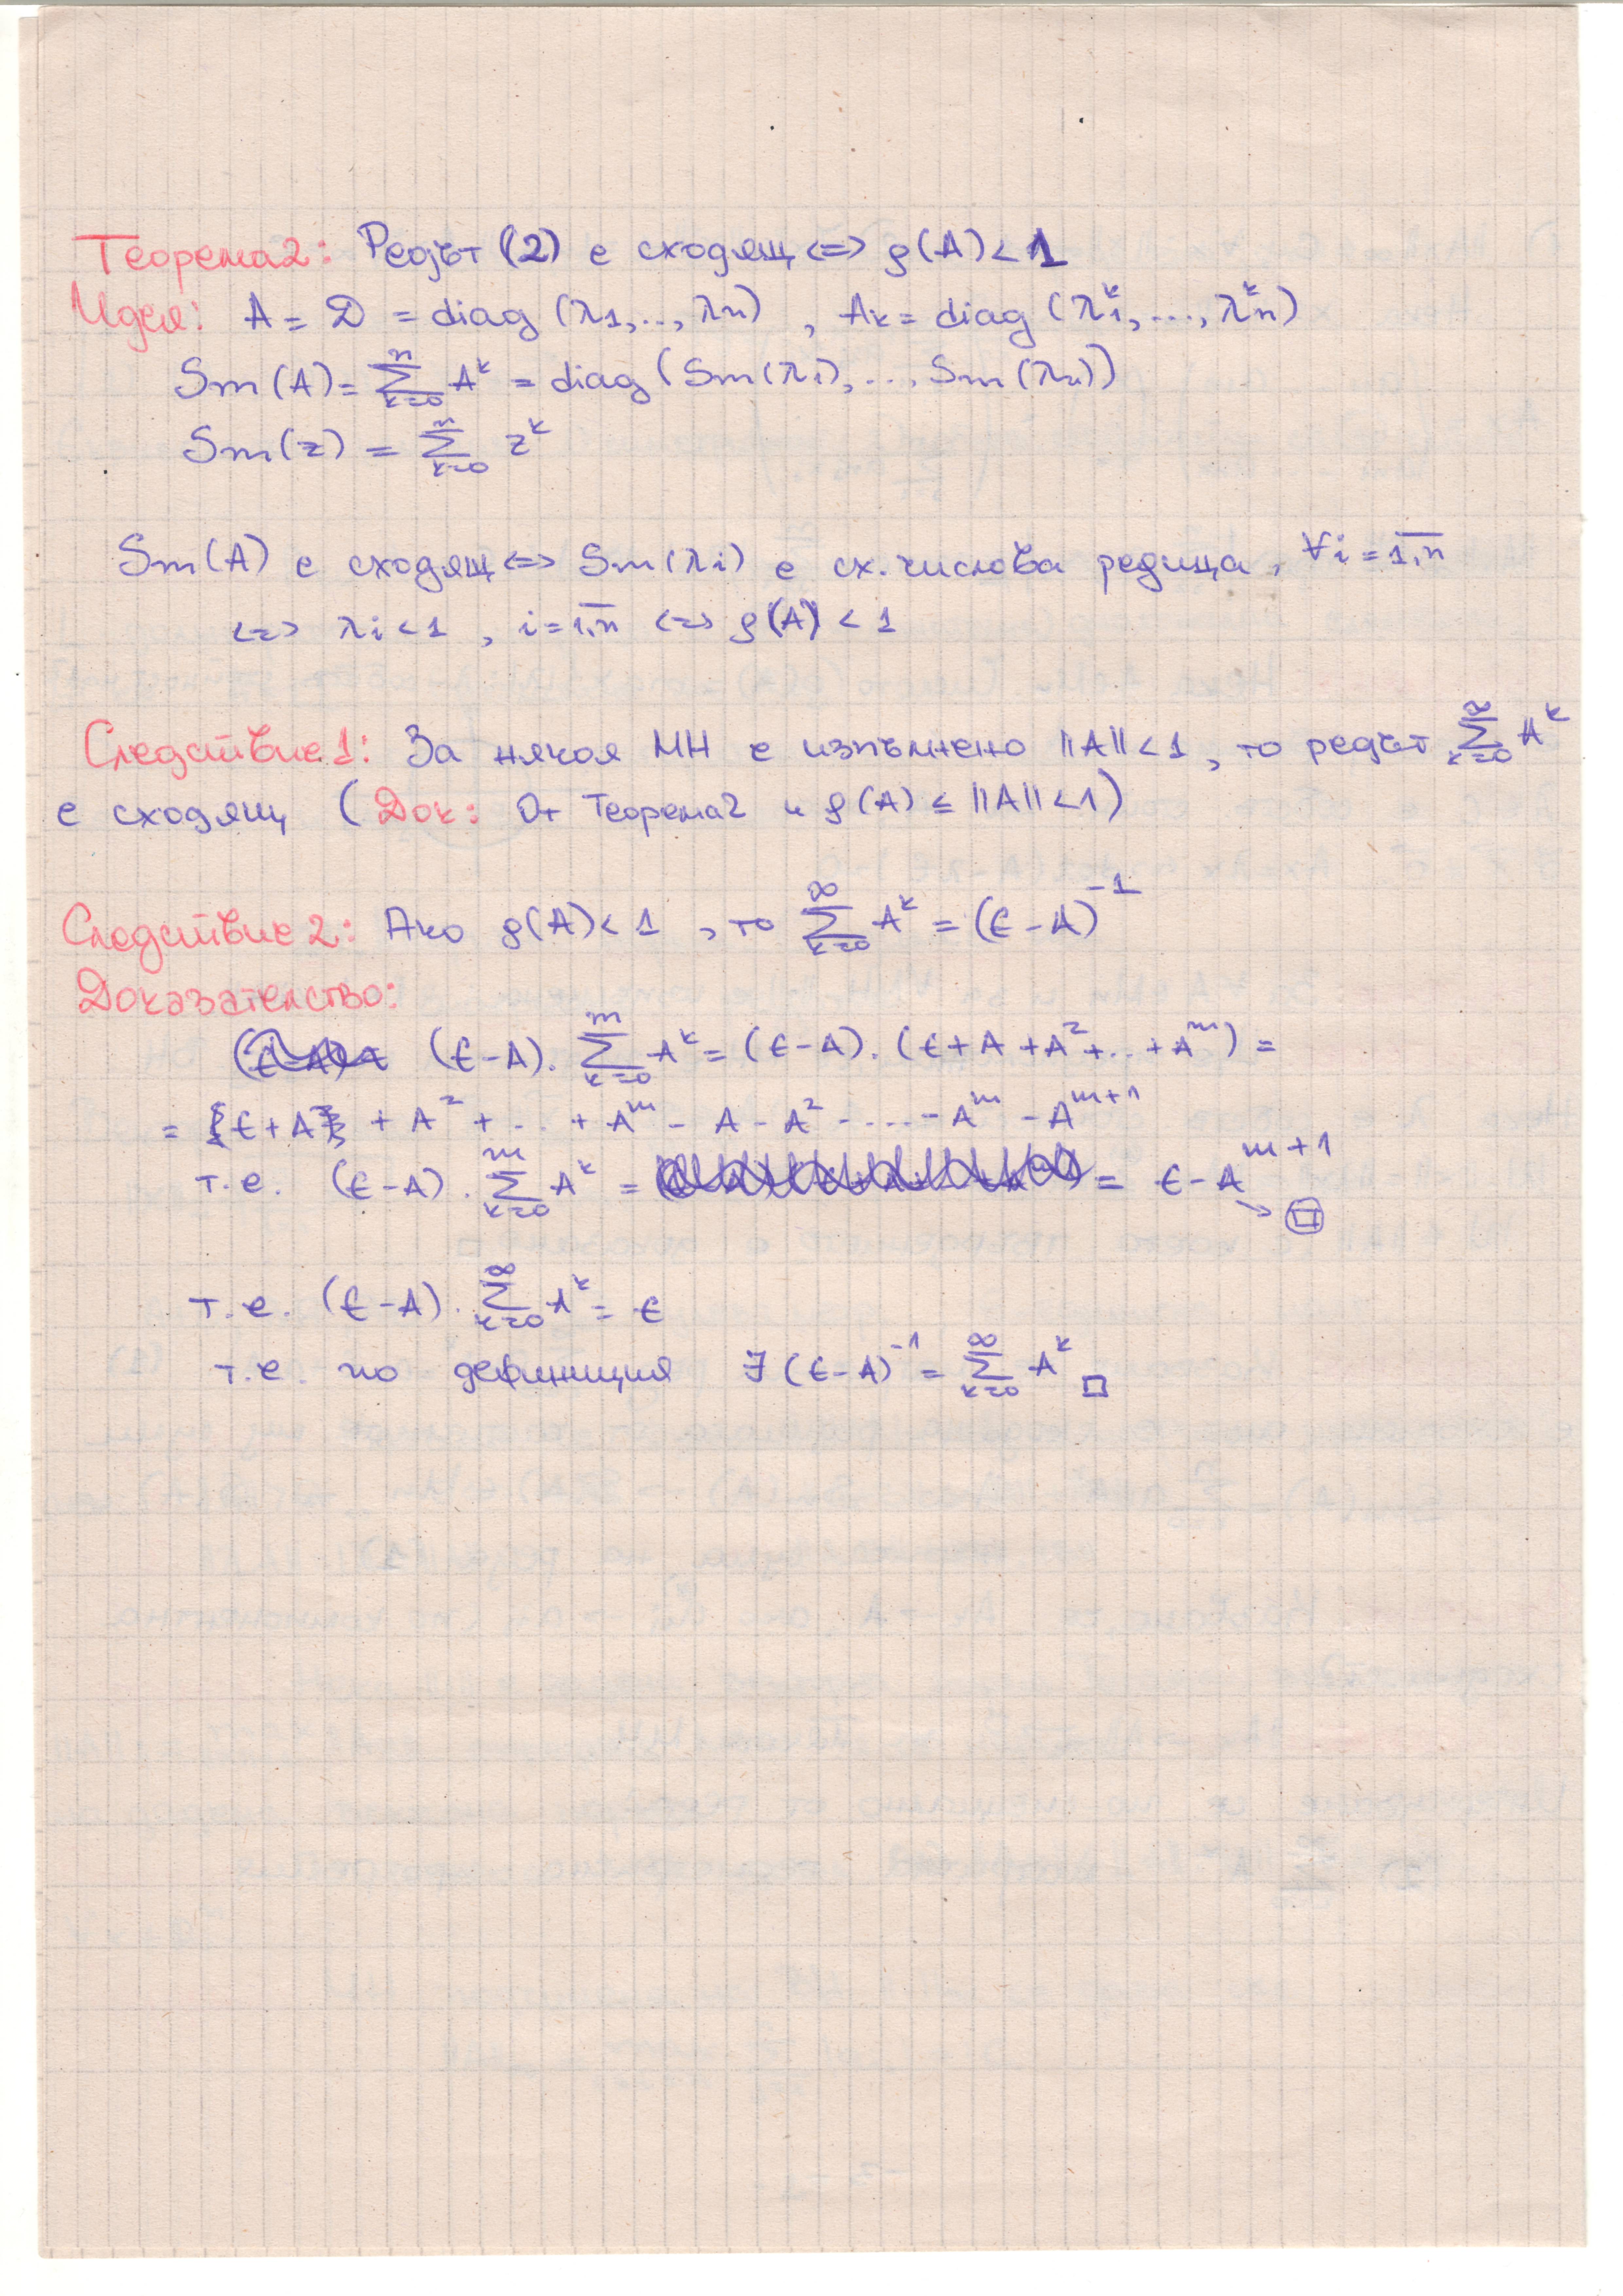 Теорема 2: Редът (2) е сходящ <=> ρ(A) < 1
Идея: A = D = diag (λ1,..., λn) , Ak = diag (λ1^k, ..., λn^k)
Sm(A) = ∑_{k=0}^{m} A^k = diag (Sm(λ1), ..., Sm(λn))
Sm(z) = ∑_{k=0}^{m} z^k
Sm(A) е сходящ <=> Sm(λi) е сх. числова редица, ∀i = 1,n
<=> λi < 1 , i = 1,n <=> ρ(A) < 1
Следствие 1: За някоя МН е изпълнено ||A|| < 1 , то редът ∑_{k=0}^{∞} A^k
е сходящ (Док: От Теорема 2 и ρ(A) ≤ ||A|| < 1)
Следствие 2: Ако ρ(A) < 1 , то ∑_{k=0}^{∞} A^k = (E - A)^{-1}
Доказателство:
(E - A) . ∑_{k=0}^{m} A^k = (E - A) . (E + A + A^2 + .. + A^m) =
= E + A + A^2 + ... + A^m - A - A^2 - .... - A^m - A^{m+1}
т.е. (E - A) . ∑_{k=0}^{m} A^k = = E - A^{m+1}
т.е. (E - A) . ∑_{k=0}^{∞} A^k = E
т.е. по дефиниция ∃ (E - A)^{-1} = ∑_{k=0}^{∞} A^k □